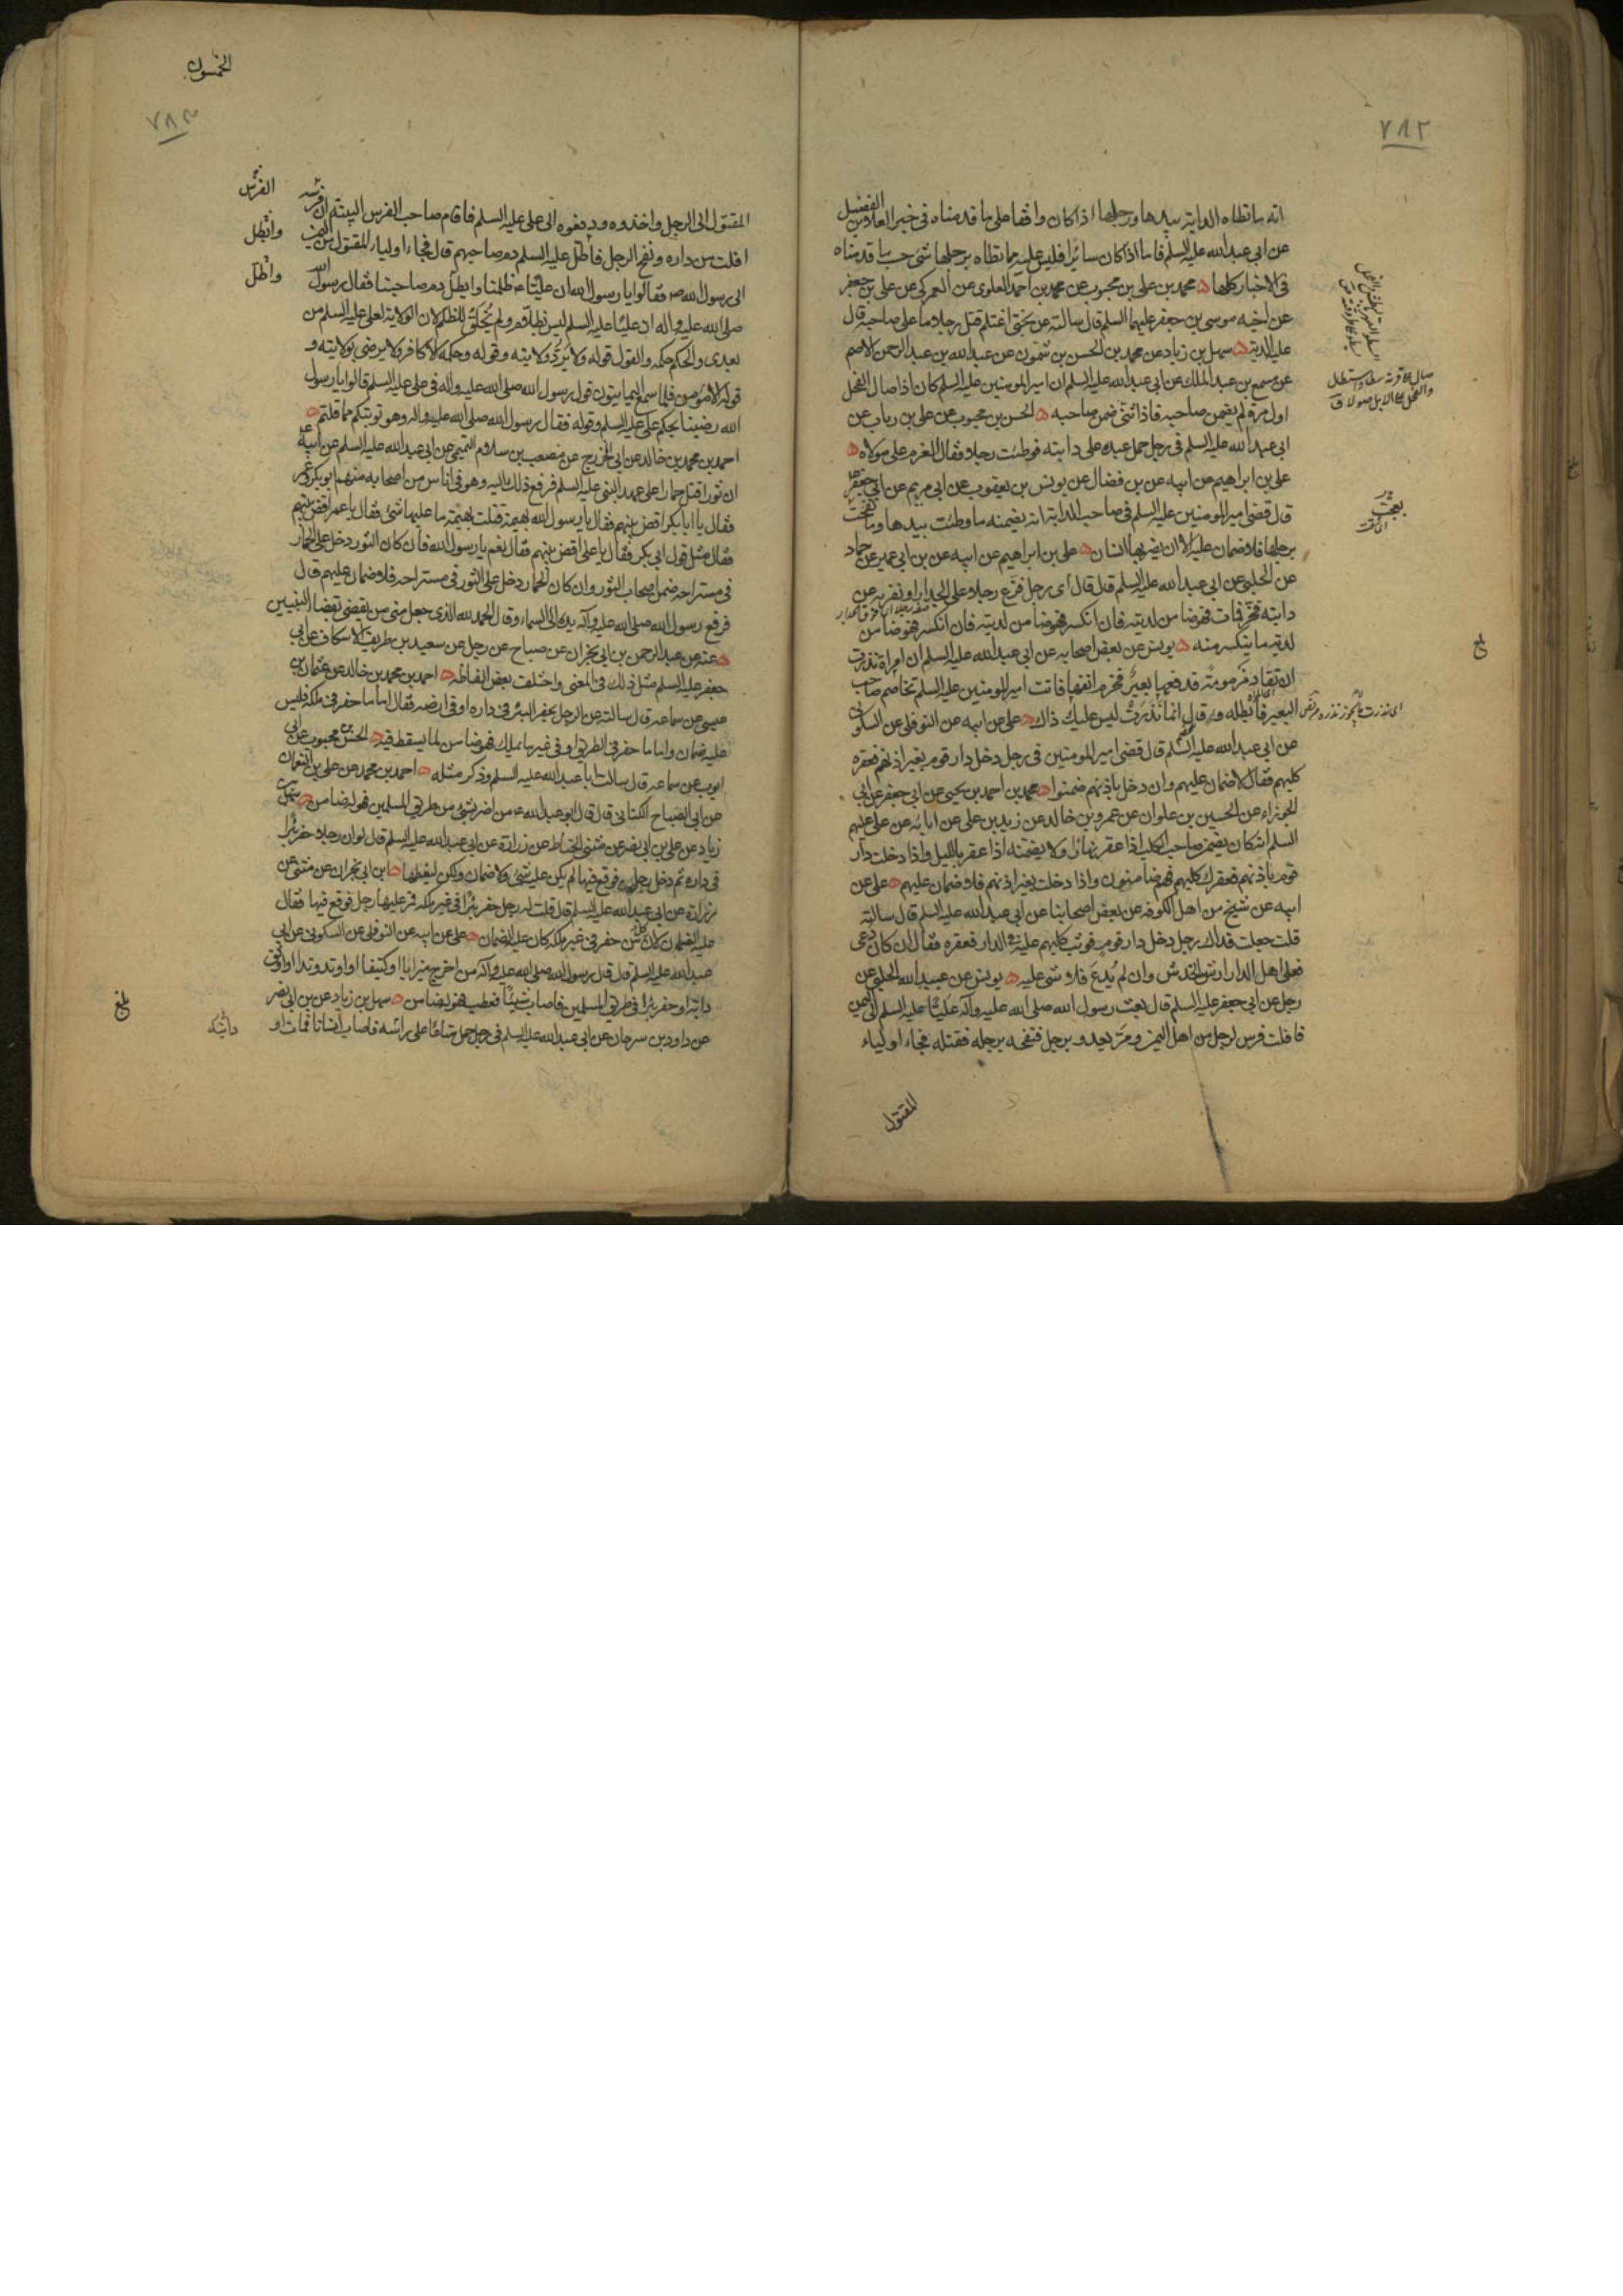 ٧٨٢
انه ما تطاه الدابة بيدها ورجلها اذا كان واقفا على ما قدمناه فى خبر العلا بن الفضيل
عن ابى عبد الله عليه السلم فاما اذا كان سائرا فليس عليه مما تطاه برجلها شئ حسب ما قدمناه
فى الاخبار كلها محمد بن على بن محبوب عن محمد بن احمد العلوى عن العمركى عن على بن جعفر
عن اخيه موسى بن جعفر عليهما السلم قال سالته عن بختى اغتلم قتل رجلا ما على صاحبه قال
عليه الدية سهل بن زياد عن محمد بن الحسن بن شمون عن عبد الله بن عبد الرحمن الاصم
عن مسمع بن عبد الملك عن ابى عبد الله عليه السلم ان امير المومنين عليه السلم كان اذا صال الفحل
اول مرة لم يضمن صاحبه فاذا ثنى ضمن صاحبه الحسن بن محبوب عن على بن رباب عن
ابى عبد الله عليه السلم فى رجل حمل عبده على دابته فوطئت رجلا فقال الغرم على مولاه
على بن ابراهيم عن ابيه عن بن فضال عن يونس بن يعقوب عن ابى مريم عن ابى جعفر
قال قضى امير المومنين عليه السلم فى صاحب الدابة انه يضمنه ما وطئت بيدها وما نفحت
برجلها فلا ضمان عليه الا ان يضربها انسان على بن ابراهيم عن ابيه عن بن ابى عمير عن حماد
عن الحلبى عن ابى عبد الله عليه السلم قال قال اى رجل فزع رجلا على الجدار او نفر به عن
دابته فخر فمات فهو ضامن لديته فان انكسر فهو ضامن لدية ما ينكسر منه
يونس عن بعض اصحابه عن ابى عبد الله عليه السلم ان امراة نذرت
ان تقاد مزمومة فدفعها بعير فخرم انفها فاتت امير المومنين عليه السلم تخاصم صاحب
البعير فابطله وقال انما نذرت ليس عليك ذاك على عن ابيه عن النوفلى عن السكونى
عن ابى عبد الله عليه السلم قال قضى امير المومنين فى رجل دخل دار قوم بغير اذنهم فعقره
كلبهم فقال لا ضمان عليهم وان دخل باذنهم ضمنوا محمد بن احمد بن يحيى عن ابى جعفر عن ابى
الجوزاء عن الحسين بن علوان عن عمرو بن خالد عن زيد بن على عن ابائه عن على عليهم
السلم انه كان يضمن صاحب الكلب اذا عقر نهارا ولا يضمنه اذا عقر بالليل واذا دخلت دار
قوم باذنهم فعقرك كلبهم فهم ضامنون واذا دخلت بغير اذنهم فلا ضمان عليهم على عن
ابيه عن شيخ من اهل الكوفه عن بعض اصحابنا عن ابى عبد الله عليه السلم قال سالته
قلت جعلت فداك رجل دخل دار قوم فوثب كلبهم عليه فى الدار فعقره فقال ان كان دعى
فعلى اهل الدار ارش الخدش وان لم يدع فلا شئ عليه يونس عن عبيد الله الحلبى عن
رجل عن ابى جعفر عليه السلم قال بعث رسول الله صلى الله عليه وآله عليا عليه السلم الى اليمن
فافلت فرس لرجل من اهل اليمن ومر يعدو برجل فنفحه برجله فقتله فجاء اولياء
المقتول
بلغ
الخمسون
٧٨٣
المقتول الى الرجل واخذوه ودفعوه الى على عليه السلم فاقام صاحب الفرس البينة ان فرسه
افلت من داره ونفح الرجل فاطل عليه السلم دم صاحبهم قال فجاء اولياء المقتول من اليمن
الى رسول الله ص فقالوا يا رسول الله ان عليا ع ظلمنا وابطل دم صاحبنا فقال رسول الله
صلى الله عليه واله ان عليا عليه السلم ليس بظلام ولم يخلق للظلم لان الولاية لعلى عليه السلم من
بعدى والحكم حكمه والقول قوله ولا يرد ولايته وقوله وحكمه الا كافر ولا يرضى بولايته و
قوله الا مؤمن فلما سمع اليمانيون قول رسول الله صلى الله عليه واله فى على عليه السلم قالوا يا رسول
الله رضينا بحكم على عليه السلم وقوله فقال رسول الله صلى الله عليه واله وهو توبتكم مما قلتم
احمد بن محمد بن خالد عن ابى الخزرج عن مصعب بن سلام التميمى عن ابى عبد الله عليه السلم عن ابيه
ان ثورا قتل حمارا على عهد النبى عليه السلم فرفع ذلك اليه وهو فى اناس من اصحابه منهم ابو بكر وعمر
فقال يا ابا بكر اقض بينهم فقال يا رسول الله بهيمة قتلت بهيمة ما عليها شئ فقال يا عمر اقض بينهم
فقال مثل قول ابى بكر فقال يا على اقض بينهم فقال نعم يا رسول الله فان كان الثور دخل على الحمار
فى مستراحه ضمن اصحاب الثور وان كان الحمار دخل على الثور فى مستراحه فلا ضمان عليهم قال
فرفع رسول الله صلى الله عليه وآله يده الى السماء وقال الحمد لله الذى جعل منى من يقضى بقضاء النبيين
عنه عن عبد الرحمن بن ابى نجران عن صباح عن رجل عن سعيد بن طريف الاسكاف عن ابى
جعفر عليه السلم مثل ذلك فى المعنى واختلف بعض الفاظه احمد بن محمد بن خالد عن عثمان بن
عيسى عن سماعه قال سالته عن الرجل يحفر البئر فى داره او فى ارضه فقال اما ما حفر فى ملكه فليس
عليه ضمان واما ما حفر فى الطريق او فى غير ما يملك فهو ضامن لما يسقط فيه الحسن بن محبوب عن ابى
ايوب عن سماعه قال سالت ابا عبد الله عليه السلم وذكر مثله احمد بن محمد عن على بن النعمان
عن ابى الصباح الكنانى قال قال ابو عبد الله ع من اضر بشئ من طريق المسلمين فهو له ضامن سهل بن
زياد عن على بن ابى نصر عن مثنى الحناط عن زرارة عن ابى عبد الله عليه السلم قال لو ان رجلا حفر بئرا
فى داره ثم دخل رجل فوقع فيها لم يكن عليه شئ ولا ضمان ولكن ليغطها ابن ابى نجران عن مثنى عن
زرارة عن ابى عبد الله عليه السلم قال قلت له رجل حفر بئرا فى غير ملكه فمر عليها رجل فوقع فيها فقال
عليه الضمان لان كل من حفر فى غير ملكه كان عليه الضمان على عن ابيه عن النوفلى عن السكونى عن ابى
عبد الله عليه السلم قال قال رسول الله صلى الله عليه وآله من اخرج ميزابا او كنيفا او اوتد وتدا او اوثق
دابة او حفر بئرا فى طريق المسلمين فاصاب شيئا فعطب فهو له ضامن سهل بن زياد عن بن ابى نصر
عن داود بن سرحان عن ابى عبد الله عليه السلم فى رجل حمل متاعا على راسه فاصاب انسانا فمات او
الفرس
وابطل
واطل
بلغ